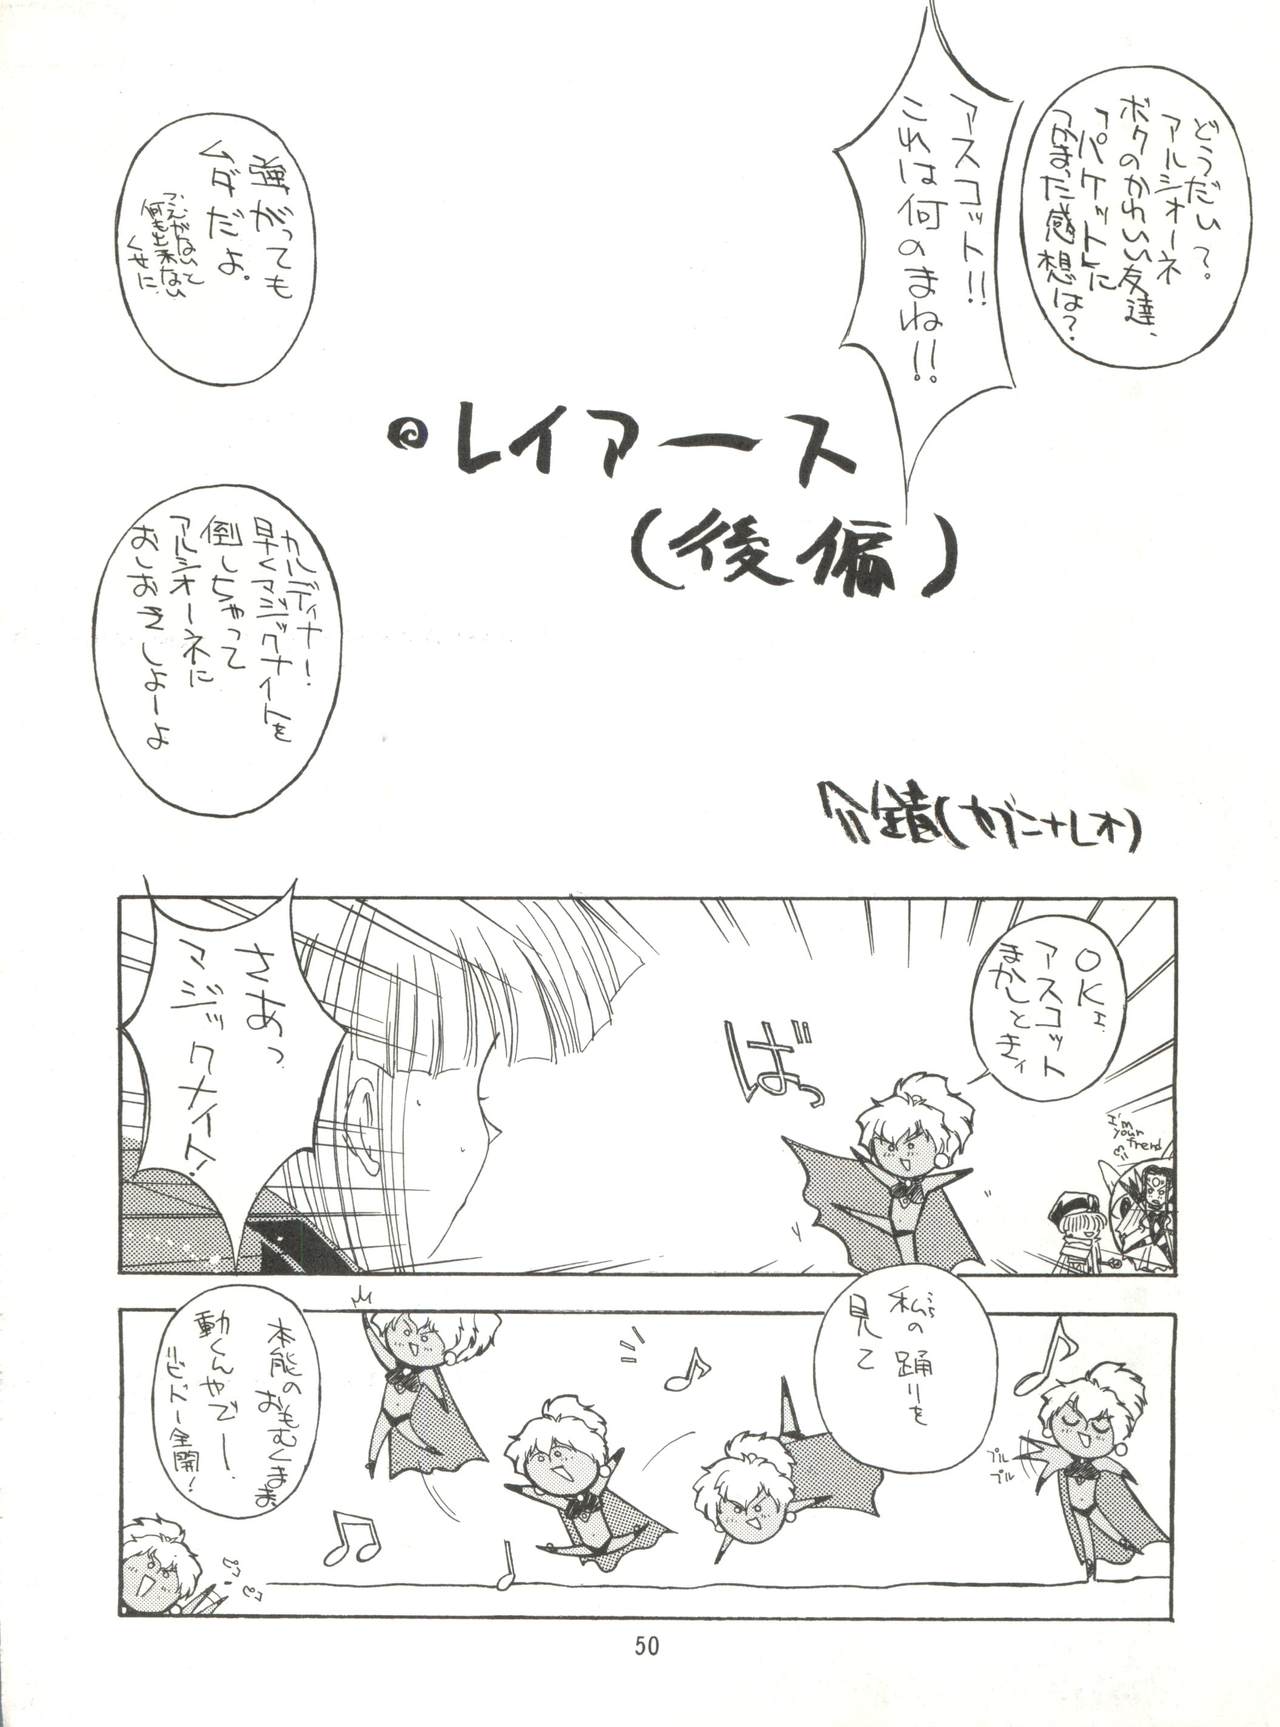 どうだい?
アルシオーネ
ボクのかわいい友達、
「パケット」に
つかまった感想は?
アスコット!!
これは何のまね!!
強がっても
ムダだよ。
つえがないて
何も出来ない
くせに
レイアース
(後編)
カルディナ!
早くマジックナイトを
倒しちゃって
アルシオーネに
おしおきしよーよ
介錯(カブニナレオ)
OKェ
アスコット
まかしときィ
I'm
your
frend
ばっ
さあっ
マジックナイト!
私の踊りを
見て
プルプル
本能の
おもむくまま、
動くんやでー
リビドー全開!
ピコピコ
50